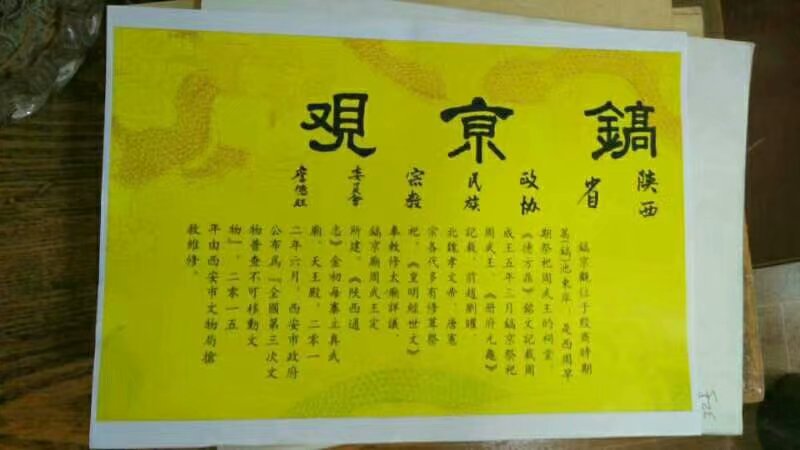 鎬亰观
陕西
省
政协
民族
宗教
委员会
鎬京觀位于殷商時期
蒿(鎬)池東岸,是西周早
期祭祀周武王的祠堂。
《德方鼎》銘文記載周
成王五年三月鎬京祭祀
周武王,《册府元龜》
記載,前趙劉曜、
北魏孝文帝、唐憲
宗各代多有修葺祭
祀。《皇明經世文》
奉敕修太廟詳議,
鎬京廟周武王定
所建。《陝西通
志》金初每寨止真武
廟、天王殿,二零一
二年六月,西安市政府
公布為『全國第三次文
物普查不可移動文
物』,二零一五
年由西安市文物局搶
救維修。
32号